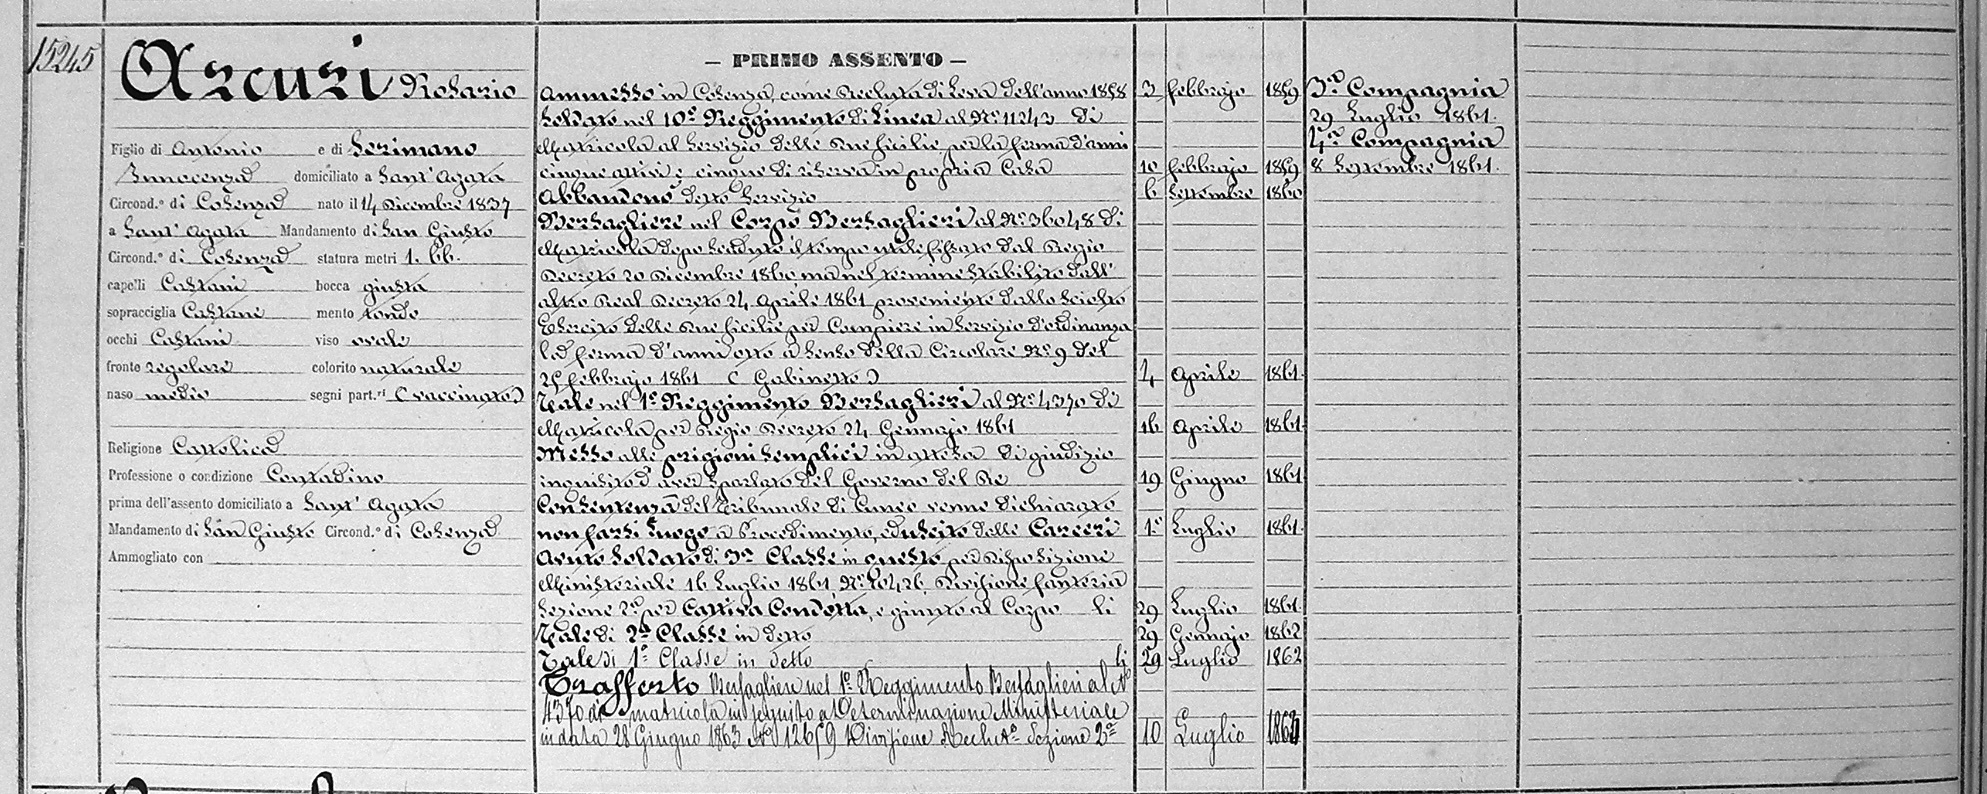 15245
Arcuri Rosario
Figlio di Antonio e di Serimano
Innocenza domiciliato a Sant' Agata
Circond.º di Cosenza nato il 14 Dicembre 1837
a Sant' Agata Mandamento di San Giusto
Circond.º di Cosenza statura metri 1. 66.
capelli Castani bocca giusta
sopracciglia Castane mento tondo
occhi Castani viso ovale
fronte regolare colorito naturale
naso medio segni part.ri (vaccinato)
Religione Cattolica
Professione o condizione Contadino
prima dell'assento domiciliato a Sant' Agata
Mandamento di San Giusto Circond.º di Cosenza
Ammogliato con
— PRIMO ASSENTO —
Ammesso in Cosenza, come Recluta di Leva dell'anno 1858 3 Febbrajo 1859
Soldato nel 10º Reggimento di Linea al Nº 11243 di
Matricola al Servizio delle Due Sicilie per la ferma d'anni
cinque attivi e cinque di riserva in propria Casa 10 Febbrajo 1859
Abbandonò detto Servizio 6 Settembre 1860
Bersagliere nel Corpo Bersaglieri al Nº 36048 di
Matricola dopo scaduto il tempo utile fissato dal Regio
Decreto 20 Dicembre 1860, ma nel termine stabilito dall'
altro Real Decreto 24 Aprile 1861 proveniente dallo sciolto
Esercito delle Due Sicilie per Compiere in Servizio d'ordinanza
la ferma d'anni otto a senso della Circolare Nº 9 del
25 Febbrajo 1861 (Gabinetto) 4 Aprile 1861.
Tale nel 1º Reggimento Bersaglieri al Nº 4370 di
Matricola per Regio Decreto 24 Gennajo 1861 16 Aprile 1861.
Messo alle prigioni semplici in attesa di giudizio
inquisito d'aver sparlato del Governo del Re 19 Giugno 1861
Con Sentenza del Tribunale di Cuneo venne dichiarato
non farsi luogo a Procedimento, ed uscito delle Carceri 1º Luglio 1861.
Avuto Soldato di 3ª Classe in questo per Disposizione
Ministeriale 16 Luglio 1861, Nº 20426, Divisione fanteria
Sezione 2ª per Cattiva Condotta, e giunto al Corpo li 29 Luglio 1861.
Tale di 2ª Classe in detto 29 Gennajo 1862
Tale di 1ª Classe in detto li 29 Luglio 1862
Trasferto Bersagliere nel 1º Reggimento Bersaglieri al Nº
4370 di matricola in seguito a Determinazione Ministeriale
in data 28 Giugno 1863 Nº 12659 Divisione Reclutº Sezione 2ª 10 Luglio 1863
3ª Compagnia
29 Luglio 1861.
4ª Compagnia
8 Settembre 1861.